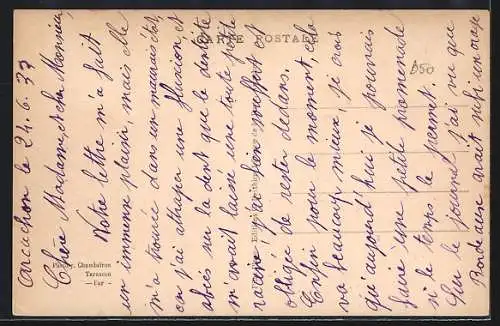 Arcachon le 24.6.37
Chère Madame, et cher Monsieur,
Votre lettre m'a fait
un immense plaisir, mais elle
m'a trouvée dans un mauvais état,
car j'ai attrapé une fluxion et
abcès sur la dent que le dentiste
m'avait laissé une toute petite
racine, j'ai bien souffert et
obligée de rester dedans.
Enfin pour le moment, cela
va beaucoup mieux, je crois
qu'aujourd'hui je pourrais
faire une petite promenade
si le temps le permet.
Sur le journal j'ai vu que
Bordeaux avait subi un orage
CARTE POSTALE
D50
Chambéron
Tarascon